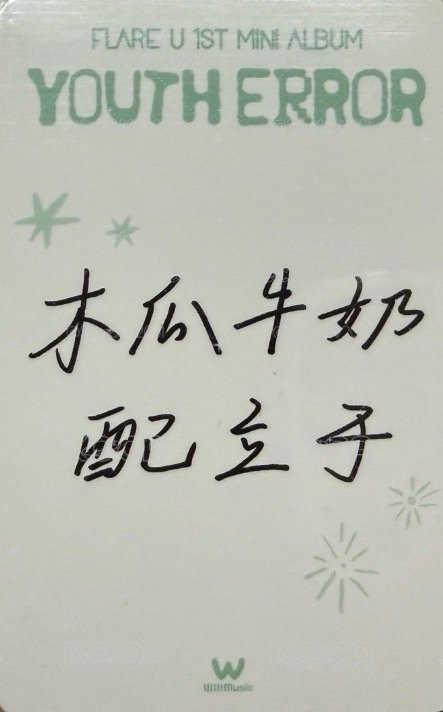 FLARE U 1ST MINI ALBUM
YOUTH ERROR
木瓜牛奶
配立于
W
WillMusic